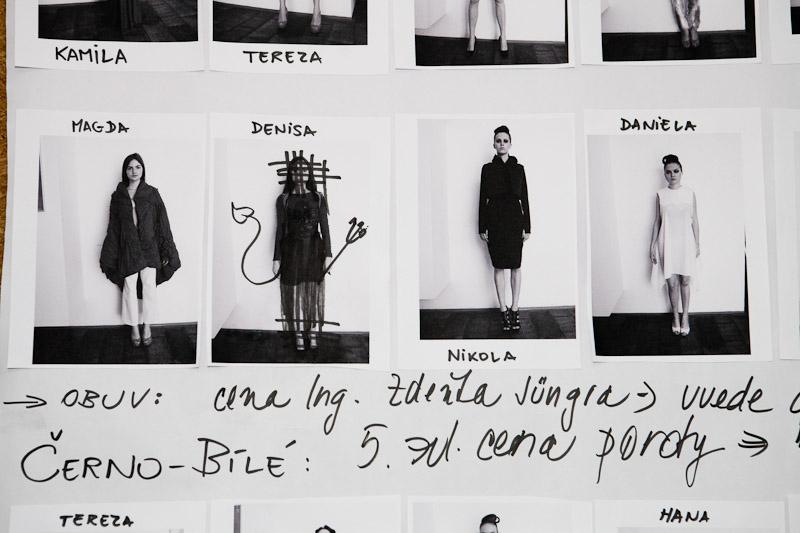 KAMILA TEREZA
MAGDA DENISA DANIELA
NIKOLA
→ OBUV: cena Ing. Zdeňka Jüngra → uvede
ČERNO-BÍLÉ: 5. zvl. cena poroty ⇒
TEREZA HANA